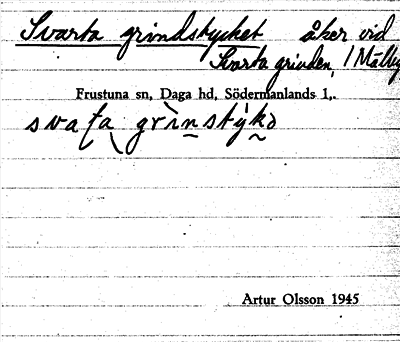 Svarta grindstycket åker vid
Svarta grinden, / Mälby
Frustuna sn, Daga hd, Södermanlands l,.
Artur Olsson 1945